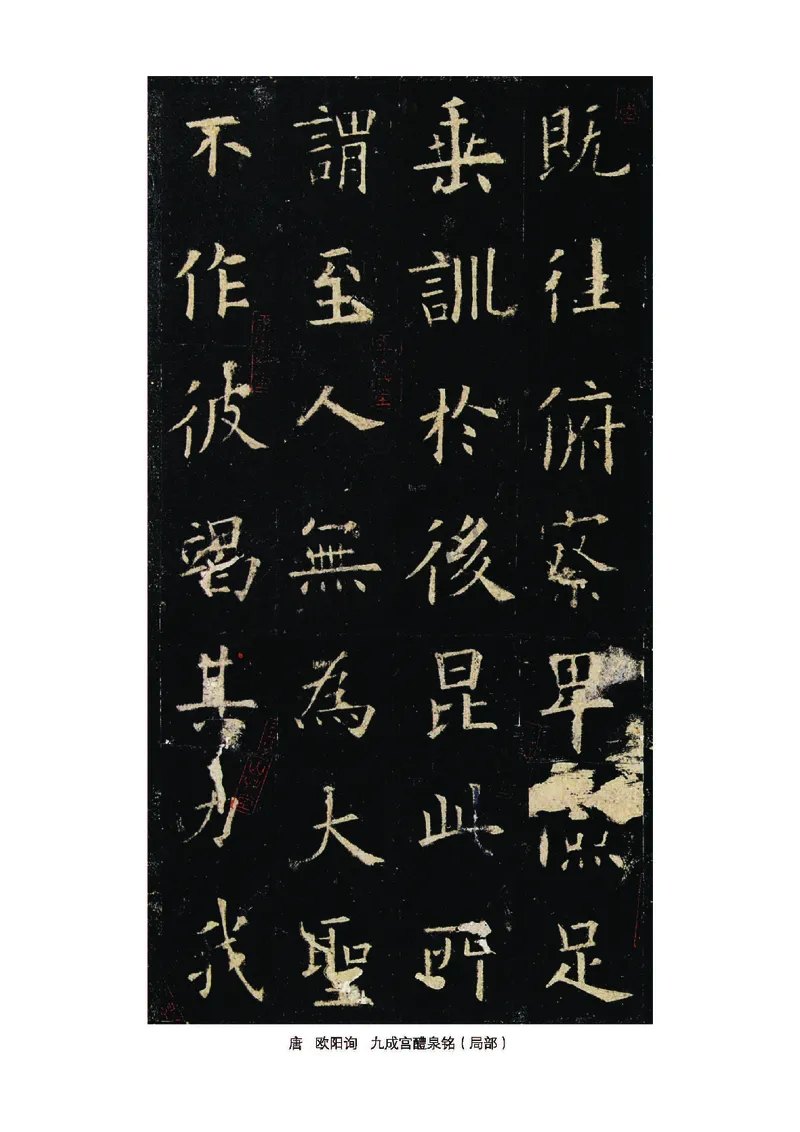 既往俯察卑足
垂訓於後昆此所
謂至人無為大聖
不作彼竭其力我
唐 欧阳询 九成宫醴泉铭（局部）